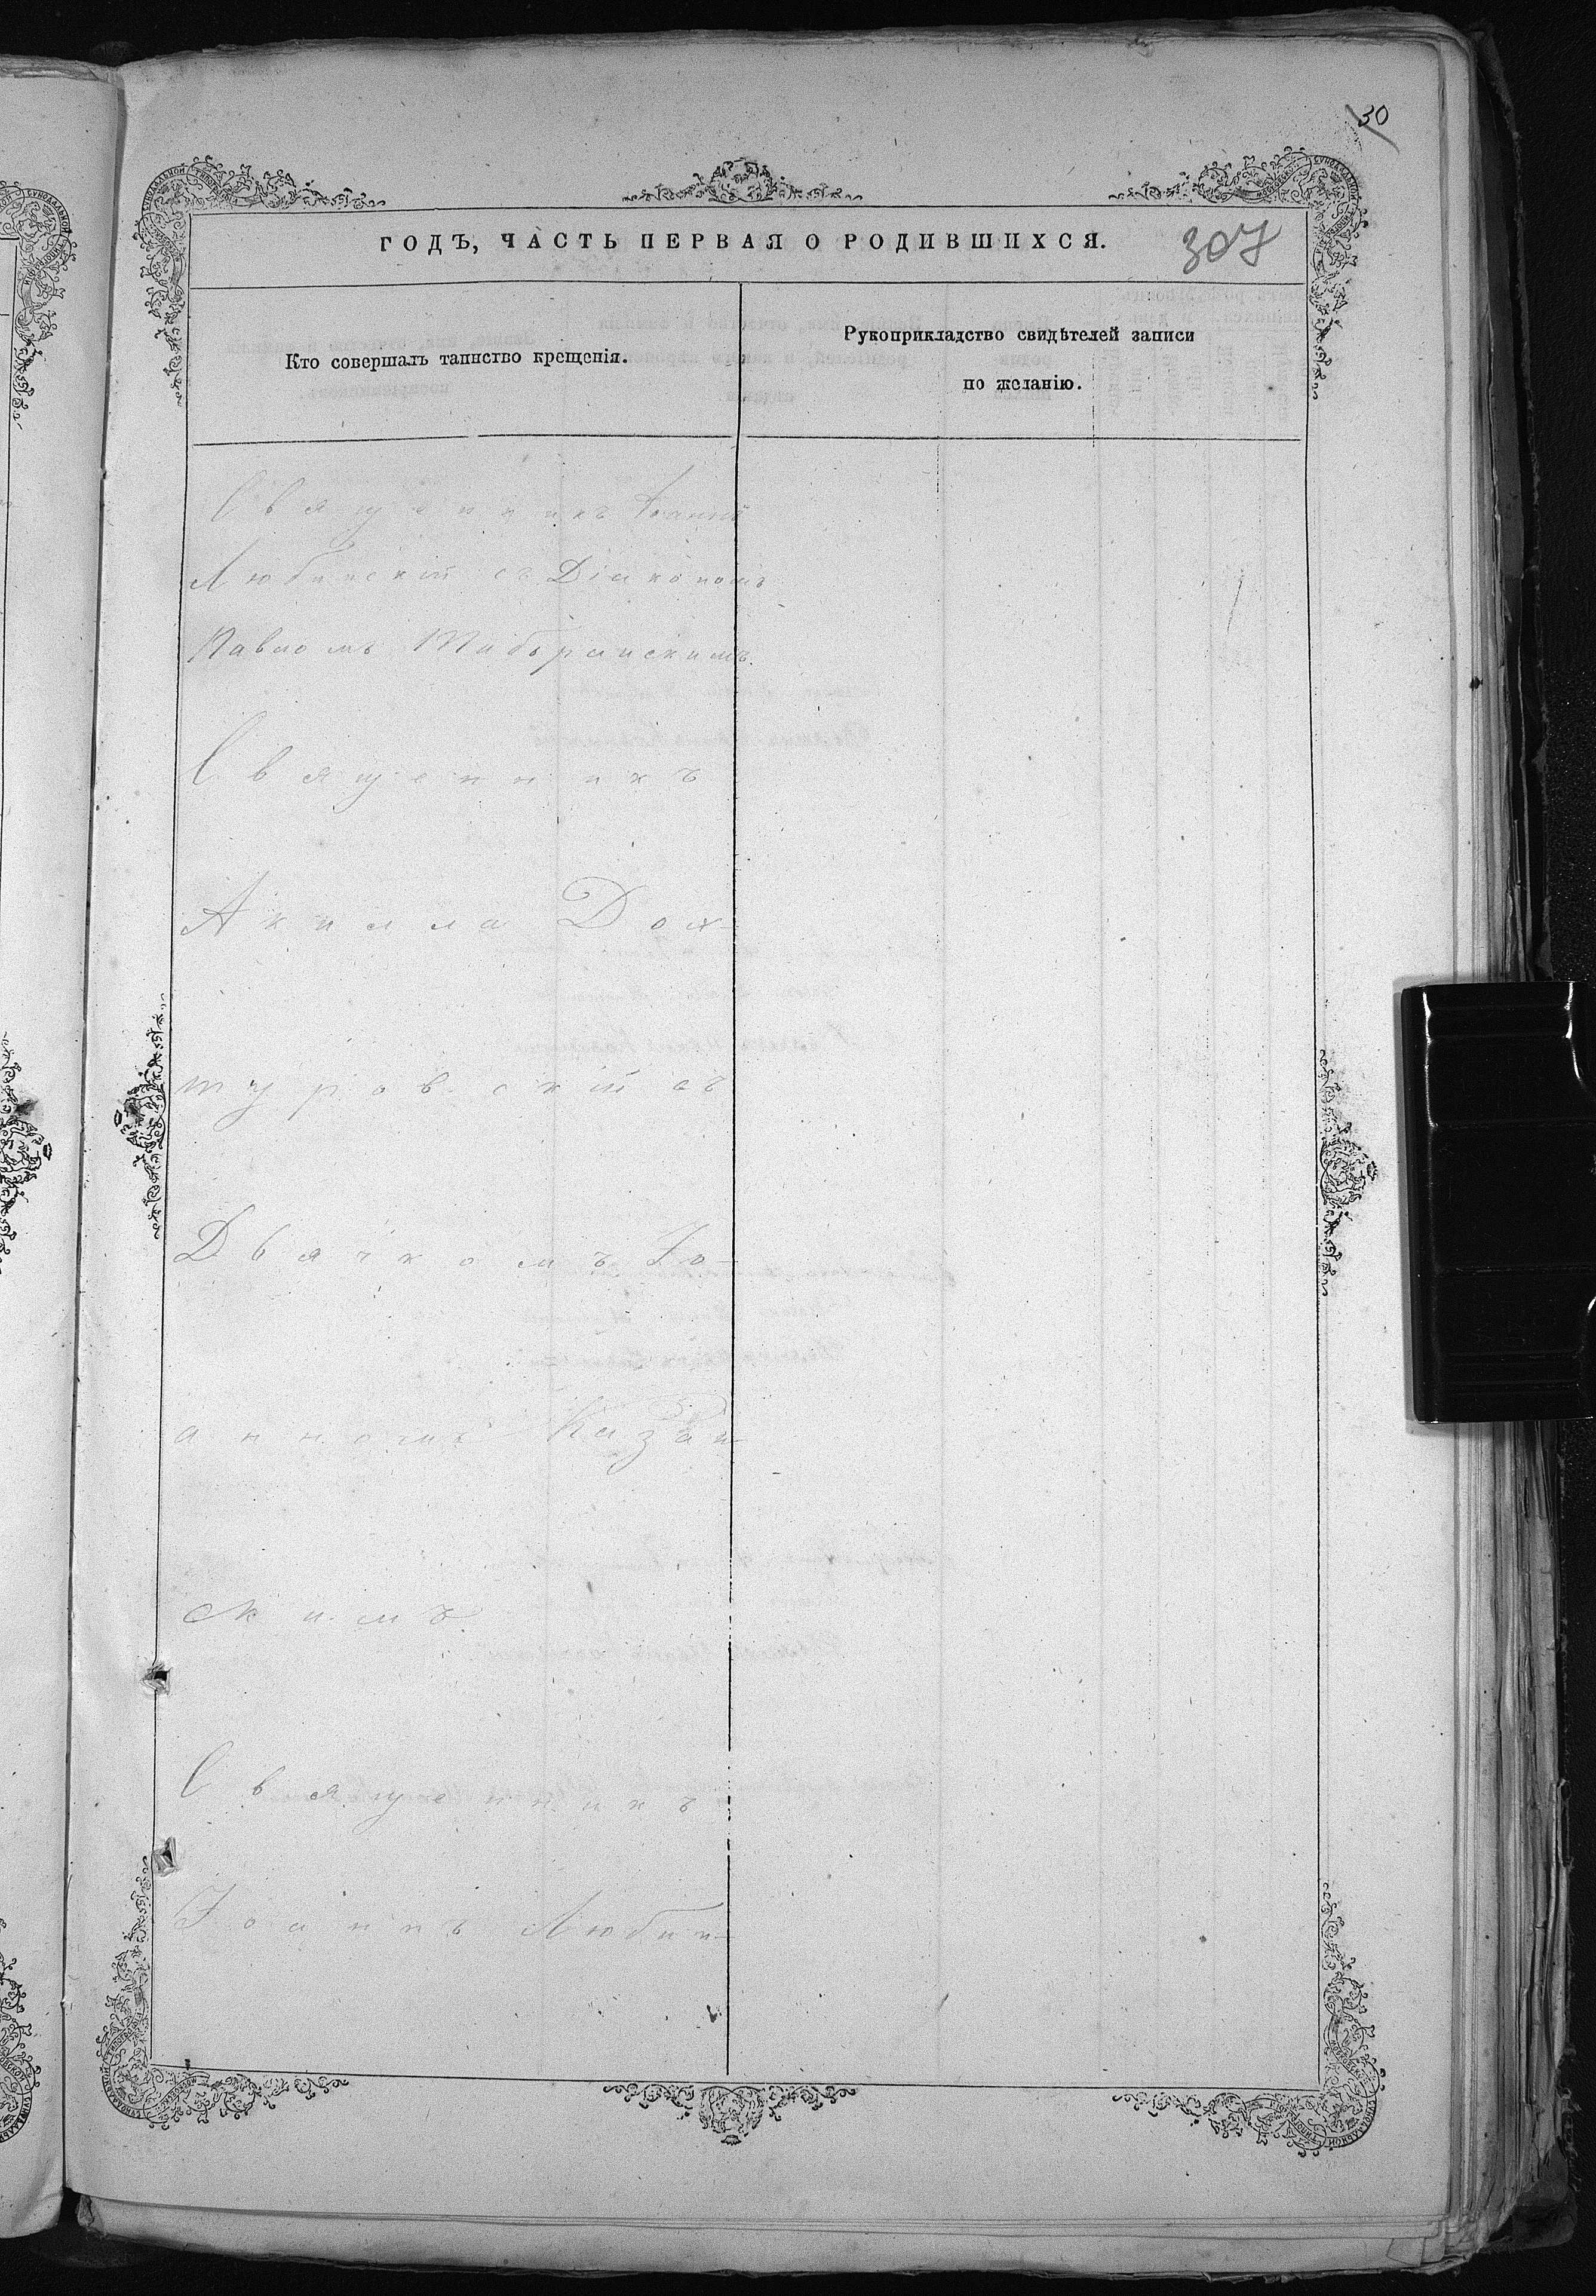 30
ГОДЪ, ЧАСТЬ ПЕРВАЯ О РОДИВШИХСЯ.
307
Кто совершалъ таинство крещенія.
Рукоприкладство свидѣтелей записи
по желанію.
Священникъ Іоаннъ
Любинскій съ Діакономъ
Павломъ
Священникъ
Акилла Дох-
туровскій съ
Дьячкомъ Іо-
анномъ Казан-
скимъ
Священникъ
Іоаннъ Любин-